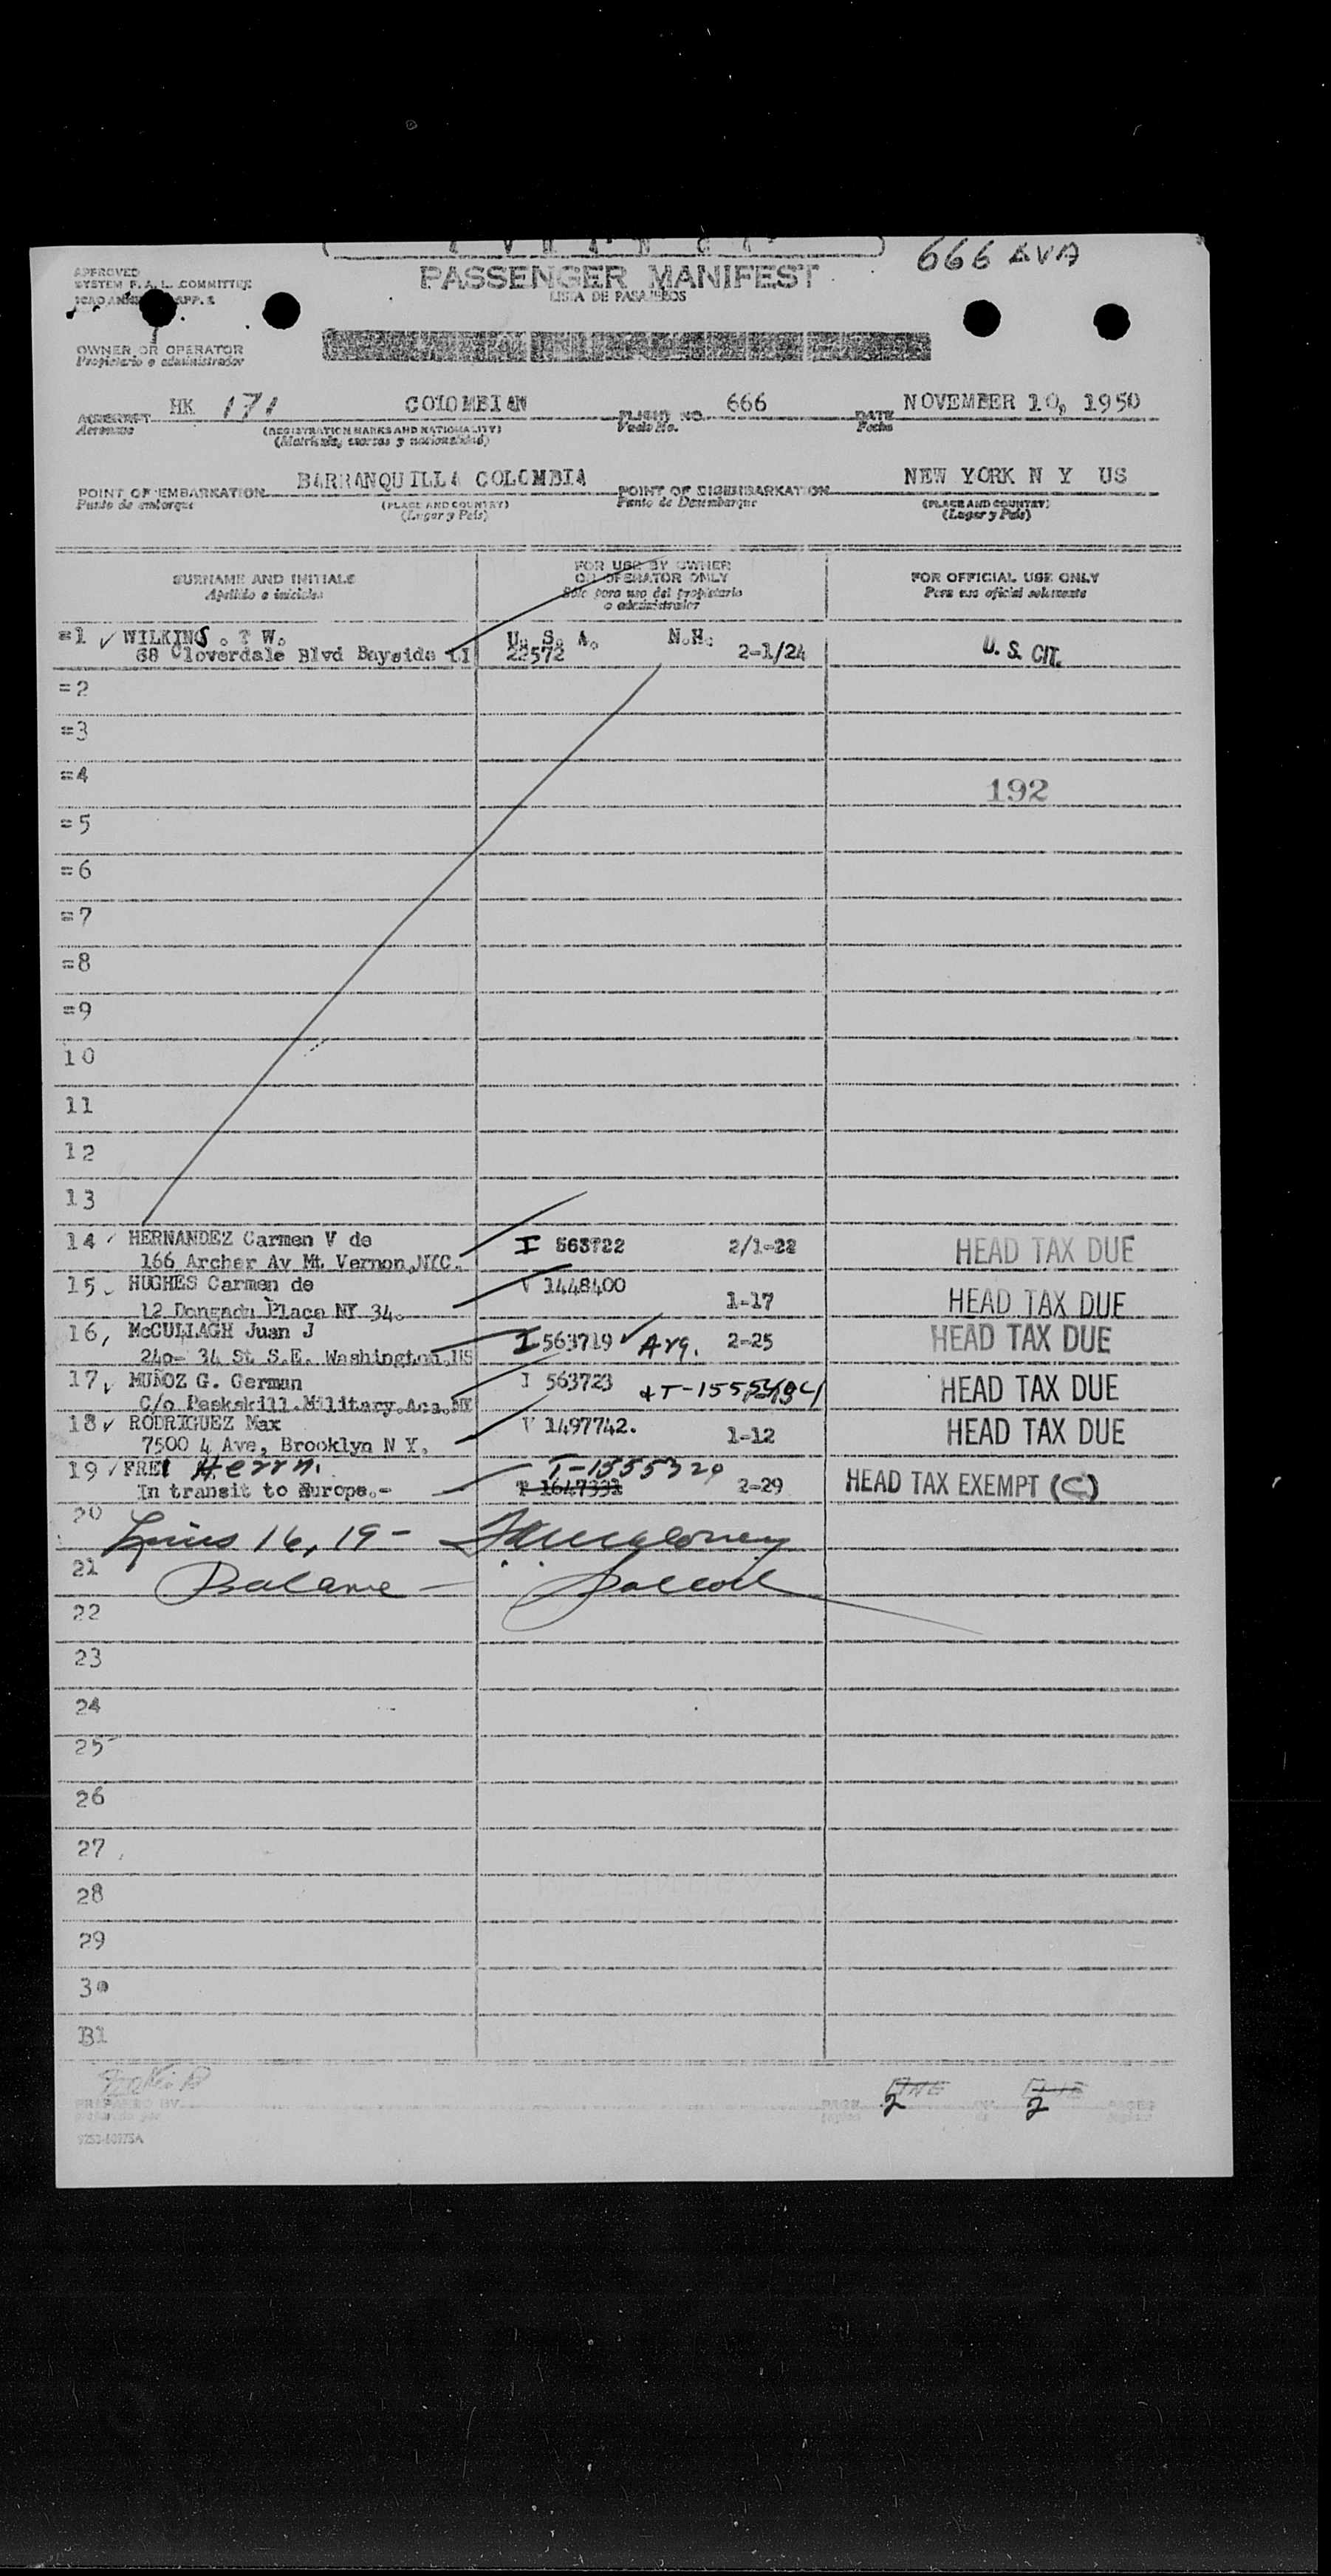 A V I A N C A
666 AVA
PASSENGER MANIFEST
LISTA DE PASAJEROS
APPROVED
SYSTEM F. A. L. COMMITTEE
ICAO APP. 2
OWNER OR OPERATOR
Propietario o administrador
AIRCRAFT HK 171 COLOMBIAN FLIGHT NO. 666 DATE NOVEMBER 10, 1950
Aeronave (REGISTRATION MARKS AND NATIONALITY) Vuelo No. Fecha
(Matrícula, marcas y nacionalidad)
POINT OF EMBARKATION BARRANQUILLA COLOMBIA POINT OF DISEMBARKATION NEW YORK N Y US
Punto de embarque (PLACE AND COUNTRY) Punto de Desembarque (PLACE AND COUNTRY)
(Lugar y País) (Lugar y País)
SURNAME AND INITIALS FOR USE BY OWNER OR OPERATOR ONLY FOR OFFICIAL USE ONLY
Apellido e iniciales Sólo para uso del propietario o administrador Para uso oficial solamente
=1 ✓ WILKINS . T W. U. S. A. N.H. U. S. CIT.
68 Cloverdale Blvd Bayside LI 22572 2-1/24
=2
=3
=4 192
=5
=6
=7
=8
=9
10
11
12
13
14 HERNANDEZ Carmen V de I 563722 2/1-22 HEAD TAX DUE
166 Archer Av Mt Vernon,NYC.
15 HUGHES Carmen de V 1448400 1-17 HEAD TAX DUE
12 Place NY 34.
16, McCULLAGH Juan J I 563719 ✓ Arg. 2-25 HEAD TAX DUE
240- 34 St S.E. Washington,US
17, MUÑOZ G. German I 563723 HEAD TAX DUE
C/o Peekskill.Military.Aca.NY
18 ✓ RODRIGUEZ Max V 1497742. 1-12 HEAD TAX DUE
7500 4 Ave, Brooklyn N Y.
19 ✓ FREI Herrn. T-1555320 HEAD TAX EXEMPT (C)
In transit to Europe.- T 1647331 2-29
20 Lines 16, 19 -
21 Balance -
22
23
24
25
26
27
28
29
30
B1
PREPARED BY PAGE ONE 2 OF ONE 2 PAGES